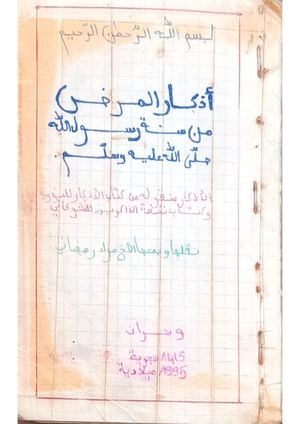 بسم الله الرحمن الرحيم
أذكار المرض
من سنة رسول الله
صلى الله عليه وسلم.
الأذكار منقولة من كتاب الأذكار للنووي
وكتاب تحفة الذاكرين للشوكاني
نقلها وجمعها الأخ مراد رمضاني
وهران
1416 هجرية
1995 ميلادية